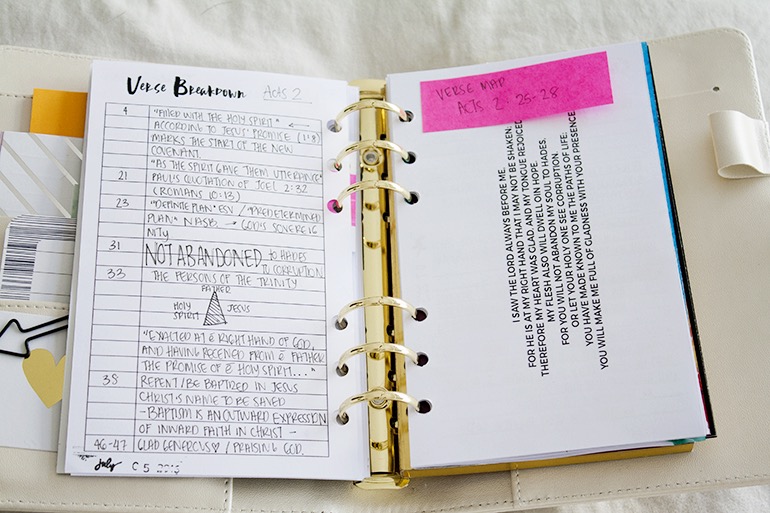 VERSE BREAKDOWN ACTS 2
4 "FILLED WITH THE HOLY SPIRIT" ←
ACCORDING TO JESUS' PROMISE (1:8)
MARKS THE START OF THE NEW
COVENANT.
"AS THE SPIRIT GAVE THEM UTTERANCE"
21 PAUL'S QUOTATION OF JOEL 2:32
(ROMANS 10:13)
23 "DEFINITE PLAN" ESV / "PREDETERMINED
PLAN" NASB → GOD'S SOVEREIG
NITY
31 NOT ABANDONED TO HADES
TO CORRUPTION
33 THE PERSONS OF THE TRINITY
FATHER
HOLY JESUS
SPIRIT
"EXALTED AT ē RIGHT HAND OF GOD,
AND HAVING RECEIVED FROM ē FATHER
THE PROMISE OF ē HOLY SPIRIT..."
38 REPENT/BE BAPTIZED IN JESUS
CHRIST'S NAME TO BE SAVED
- BAPTISM IS AN OUTWARD EXPRESSION
OF INWARD FAITH IN CHRIST -
46-47 GLAD GENEROUS♡ / PRAISING GOD.
July 05 2015
VERSE MAP
ACTS 2:25-28
I SAW THE LORD ALWAYS BEFORE ME,
FOR HE IS AT MY RIGHT HAND THAT I MAY NOT BE SHAKEN;
THEREFORE MY HEART WAS GLAD, AND MY TONGUE REJOICED
MY FLESH ALSO WILL DWELL OIN HOPE.
FOR YOU WILL NOT ABANDON MY SOUL TO HADES,
OR LET YOUR HOLY ONE SEE CORRUPTION.
YOU HAVE MADE KNOWN TO ME THE PATHS OF LIFE;
YOU WILL MAKE ME FULL OF GLADNESS WITH YOUR PRESENCE